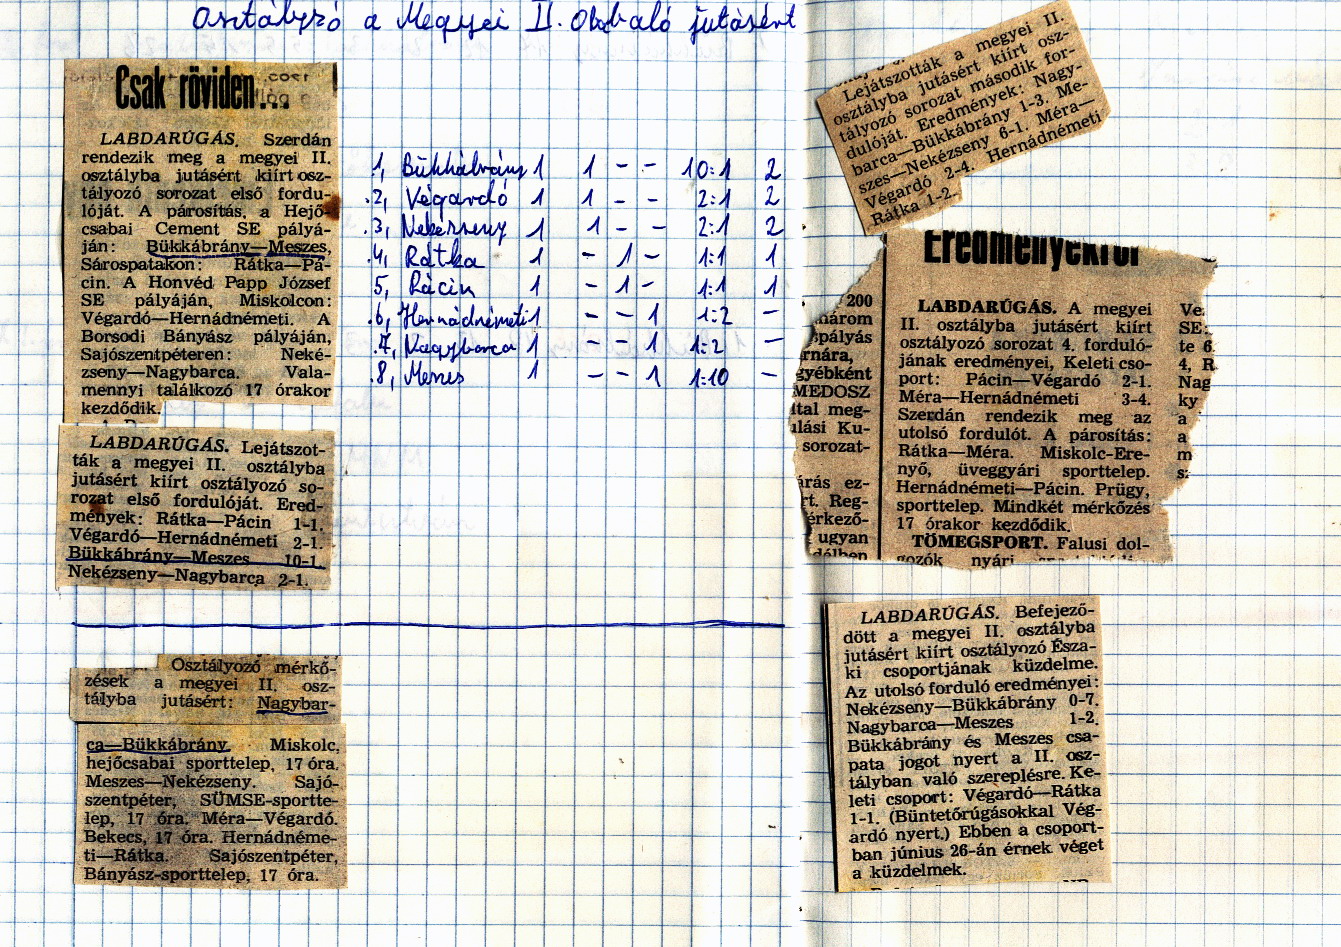 Osztályzó a Megyei II. Osztbaló jutásért
Csak röviden...
LABDARÚGÁS. Szerdán
rendezik meg a megyei II.
osztályba jutásért kiírt osz-
tályozó sorozat első fordu-
lóját. A párosítás, a Hejő-
csabai Cement SE pályá-
ján: Bükkábrány—Meszes,
Sárospatakon: Rátka—Pá-
cin. A Honvéd Papp József
SE pályáján, Miskolcon:
Végardó—Hernádnémeti. A
Borsodi Bányász pályáján,
Sajószentpéteren: Neké-
zseny—Nagybarca. Vala-
mennyi találkozó 17 órakor
kezdődik.
LABDARÚGÁS. Lejátszot-
ták a megyei II. osztályba
jutásért kiírt osztályozó so-
rozat első fordulóját. Ered-
mények: Rátka—Pácin 1-1.
Végardó—Hernádnémeti 2-1.
Bükkábrány—Meszes 10-1.
Nekézseny—Nagybarca 2-1.
1, Bükkábrány 1 1 - - 10:1 2
2, Végardó 1 1 - - 2:1 2
3, Nekézseny 1 1 - - 2:1 2
4, Rátka 1 - 1 - 1:1 1
5, Pácin 1 - 1 - 1:1 1
6, Hernádnémeti 1 - - 1 1:2 -
7, Nagybarca 1 - - 1 1:2 -
8, Meszes 1 - - 1 1:10 -
Osztályozó mérkő-
zések a megyei II. osz-
tályba jutásért: Nagybar-
ca—Bükkábrány. Miskolc,
hejőcsabai sporttelep, 17 óra.
Meszes—Nekézseny. Sajó-
szentpéter, SÜMSE-sportte-
lep, 17 óra. Méra—Végardó.
Bekecs, 17 óra. Hernádnéme-
ti—Rátka. Sajószentpéter,
Bányász-sporttelep, 17 óra.
Lejátszották a megyei II.
osztályba jutásért kiírt osz-
tályozó sorozat második for-
dulóját. Eredmények: Nagy-
barca—Bükkábrány 1-3. Me-
szes—Nekézseny 6-1. Méra—
Végardó 2-4. Hernádnémeti
Rátka 1-2.
Eredményekről
LABDARÚGÁS. A megyei
II. osztályba jutásért kiírt
osztályozó sorozat 4. forduló-
jának eredményei, Keleti cso-
port: Pácin—Végardó 2-1.
Méra—Hernádnémeti 3-4.
Szerdán rendezik meg az
utolsó fordulót. A párosítás:
Rátka—Méra. Miskolc-Ere-
nyő, üveggyári sporttelep.
Hernádnémeti—Pácin. Prügy,
sporttelep. Mindkét mérkőzés
17 órakor kezdődik.
TÖMEGSPORT. Falusi dol-
gozók nyári
200
három
spályás
rnára,
gyébként
MEDOSZ
ltal meg-
ulási Ku-
sorozat-
árás ez-
rt. Reg-
érkező-
ugyan
délben
Ve
SE
te 6
4, R
Nag
ky
a
a
m
sz
LABDARÚGÁS. Befejező-
dött a megyei II. osztályba
jutásért kiírt osztályozó Észa-
ki csoportjának küzdelme.
Az utolsó forduló eredményei:
Nekézseny—Bükkábrány 0-7.
Nagybarca—Meszes 1-2.
Bükkábrány és Meszes csa-
pata jogot nyert a II. osz-
tályban való szereplésre. Ke-
leti csoport: Végardó—Rátka
1-1. (Büntetőrúgásokkal Vég-
ardó nyert.) Ebben a csoport-
ban június 26-án érnek véget
a küzdelmek.